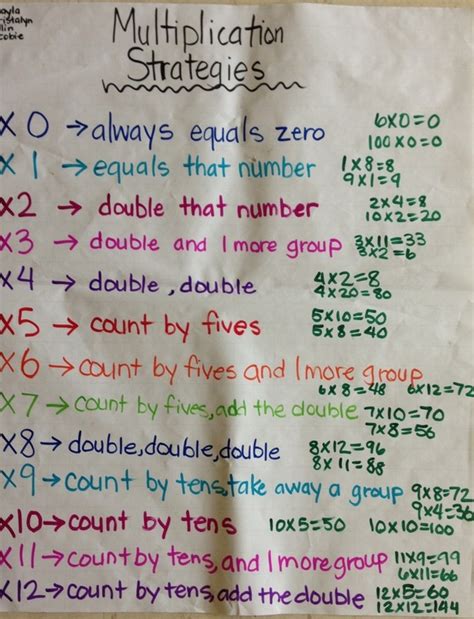 Multiplication
Strategies
x 0 → always equals zero 6x0=0
100x0=0
x 1 → equals that number 1x8=8
9x1=9
x2 → double that number 2x4=8
10x2=20
x3 → double and 1 more group 3x11=33
3x2=6
x4 → double, double 4x2=8
4x20=80
x5 → count by fives 5x10=50
5x8=40
x6 → count by fives and 1 more group
6x8=48 6x12=72
x7 → count by fives, add the double 7x10=70
7x8=56
x8 → double, double, double 8x12=96
8x11=88
x9 → count by tens, take away a group 9x8=72
9x4=36
x10 → count by tens 10x5=50 10x10=100
x11 → count by tens, and 1 more group 11x9=99
6x11=66
x12 → count by tens, add the double 12x5=60
12x12=144